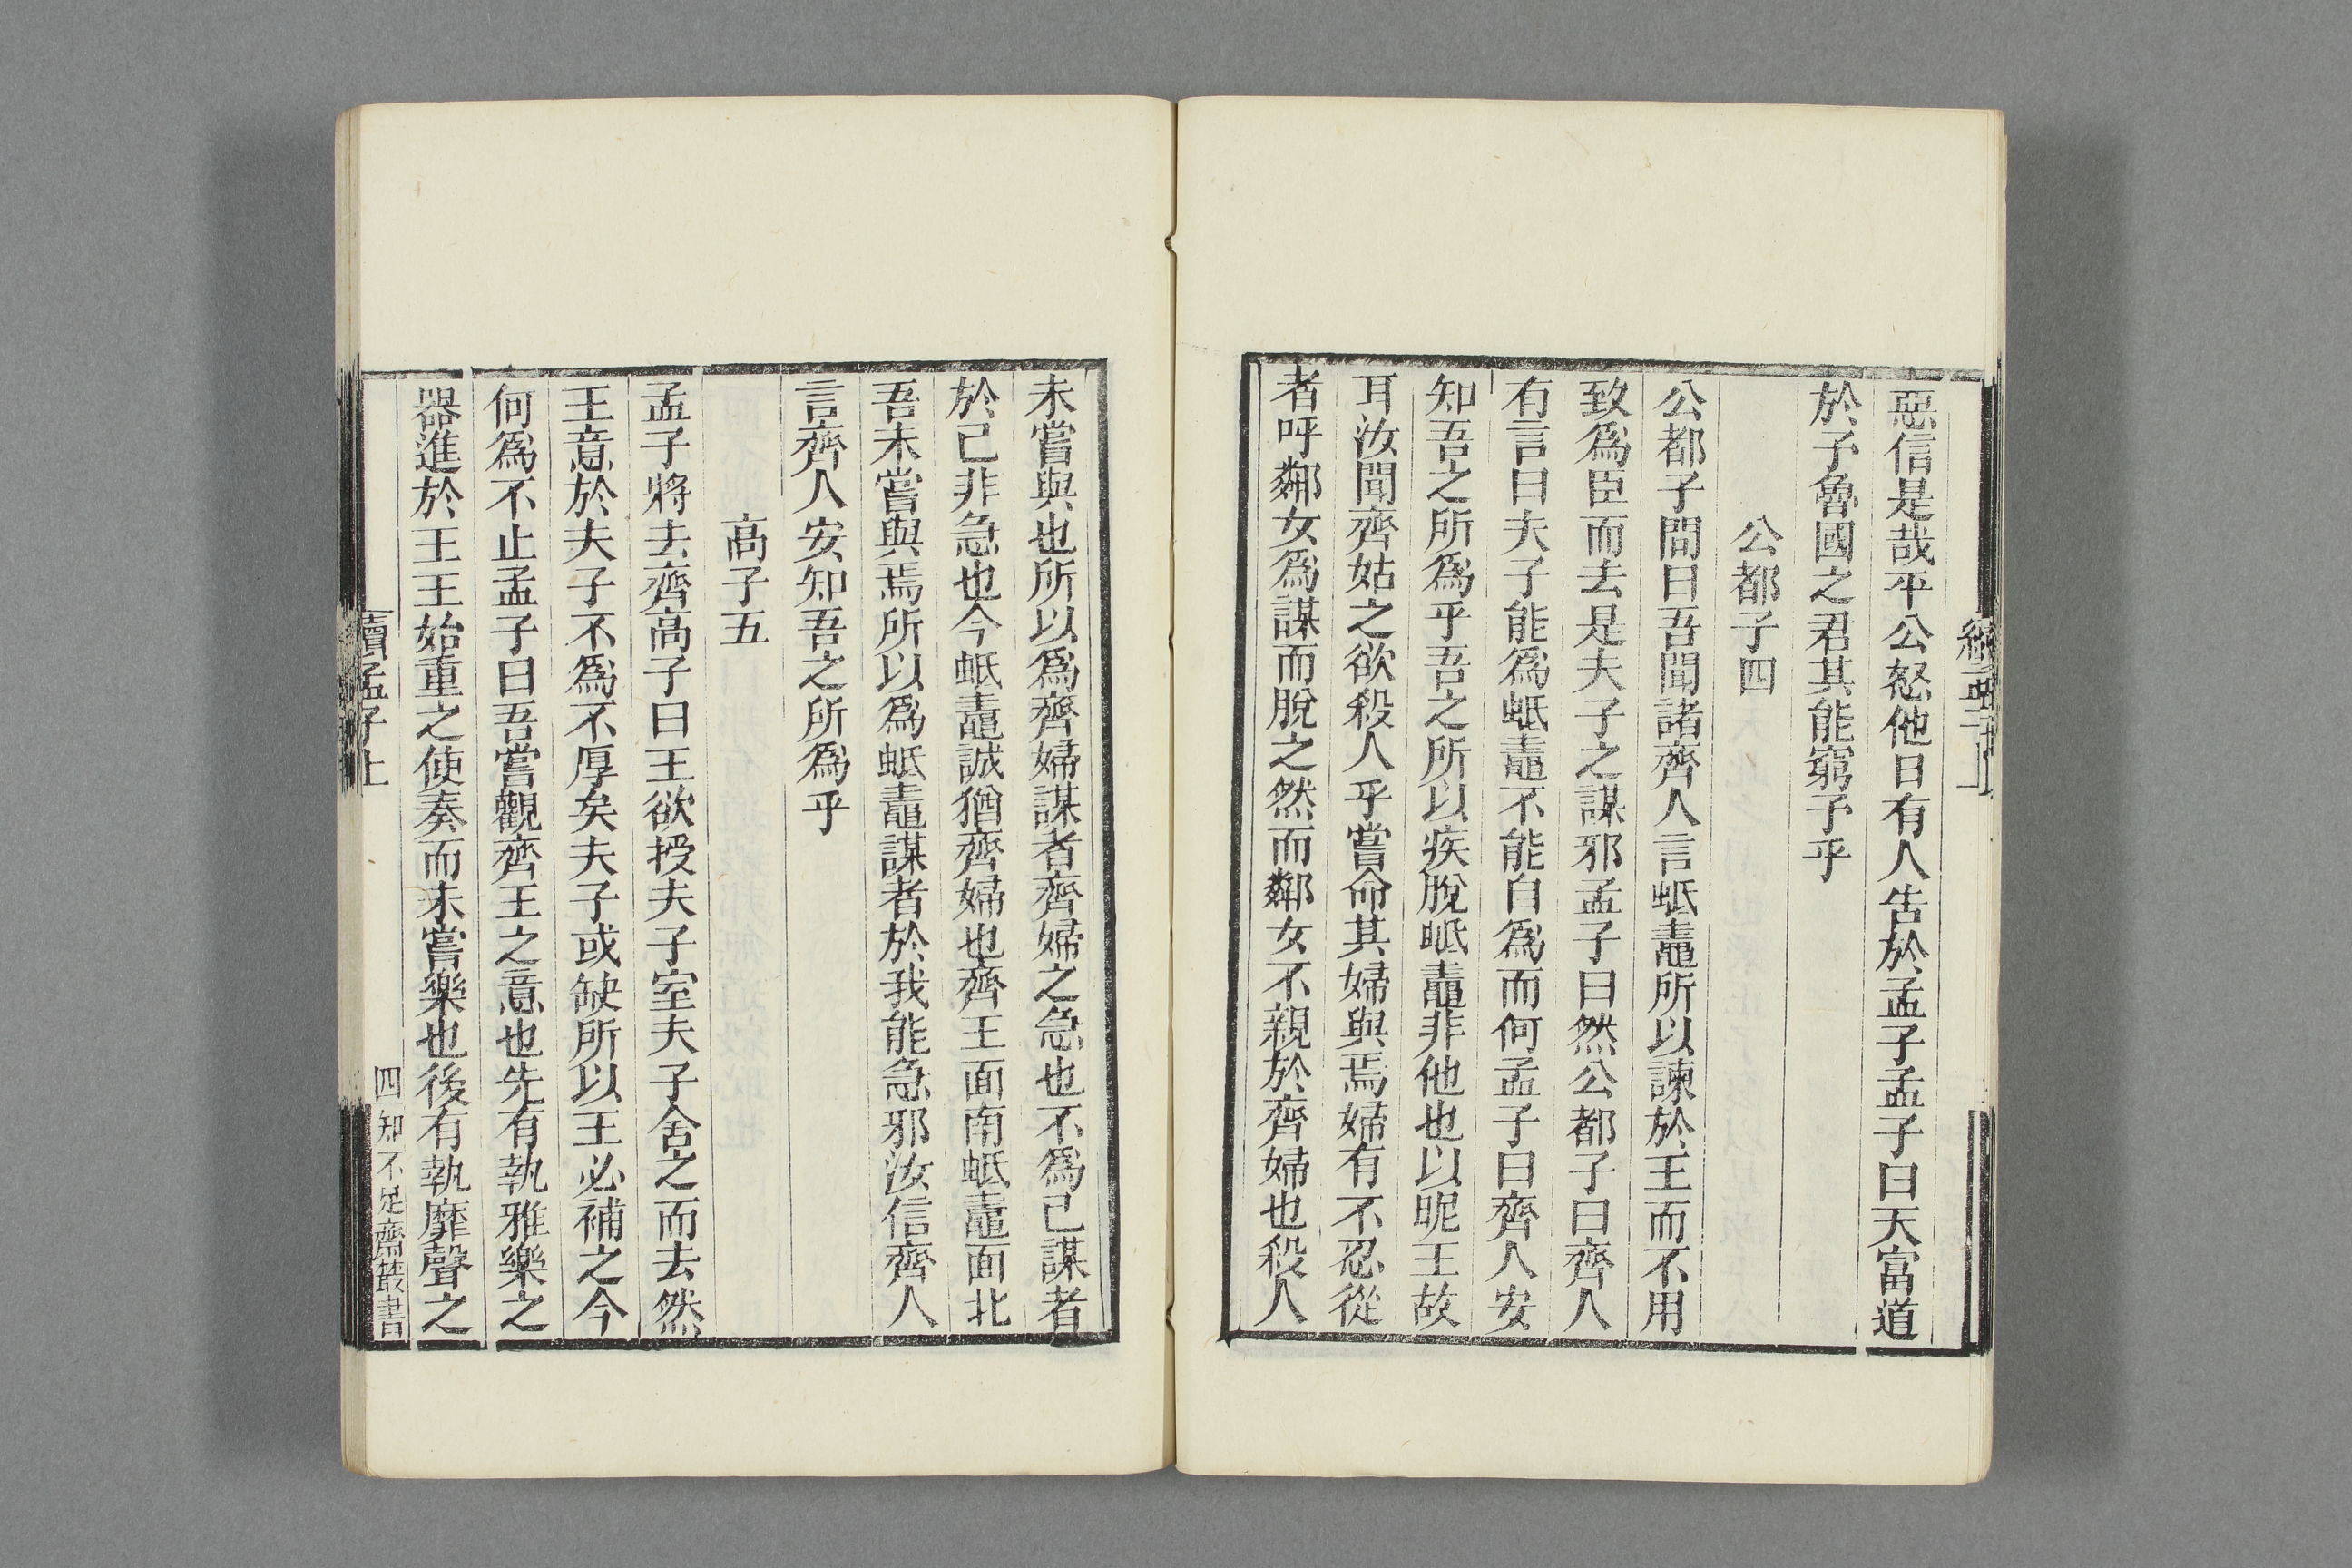 惡信是哉平公怒他日有人告於孟子孟子曰天富道
於子魯國之君其能窮子乎
公都子四
公都子問曰吾聞諸齊人言蚳鼃所以諫於王而不用
致爲臣而去是夫子之謀邪孟子曰然公都子曰齊人
有言曰夫子能爲蚳鼃不能自爲而何孟子曰齊人安
知吾之所爲乎吾之所以疾脫蚳鼃非他也以昵王故
耳汝聞齊姑之欲殺人乎嘗命其婦與焉婦有不忍從
者呼鄰女爲謀而脫之然而鄰女不親於齊婦也殺人
未嘗與也所以爲齊婦謀者齊婦之急也不爲己謀者
於己非急也今蚳鼃誠猶齊婦也齊王面南蚳鼃面北
吾未嘗與焉所以爲蚳鼃謀者於我能急邪汝信齊人
言齊人安知吾之所爲乎
高子五
孟子將去齊高子曰王欲授夫子室夫子舍之而去然
王意於夫子不爲不厚矣夫子或缺所以王必補之今
何爲不止孟子曰吾嘗觀齊王之意也先有執雅樂之
器進於王王始重之使奏而未嘗樂也後有執靡聲之
續孟子上
四
知不足齋叢書